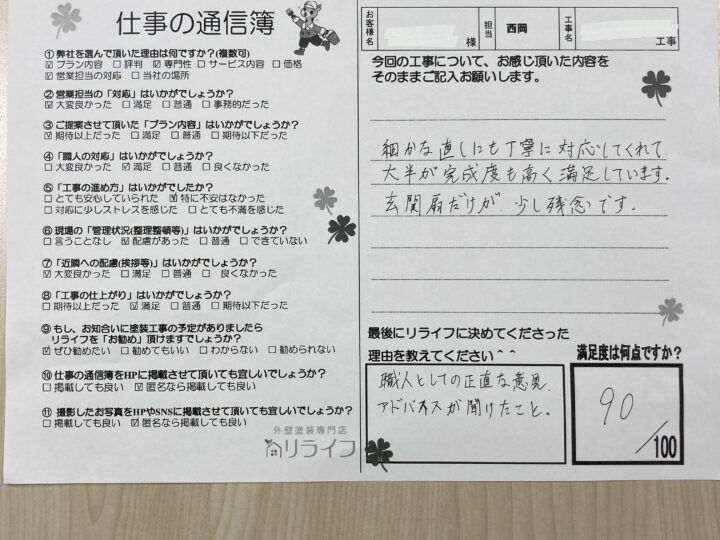 仕事の通信簿
①弊社を選んで頂いた理由は何ですか？(複数可)
☑プラン内容 □評判 ☑専門性 □サービス内容 □価格
☑営業担当の対応 □当社の場所
②営業担当の「対応」はいかがでしょうか？
☑大変良かった □満足 □普通 □事務的だった
③ご提案させて頂いた「プラン内容」はいかがでしょうか？
☑期待以上だった □満足 □普通 □期待以下だった
④「職人の対応」はいかがでしょうか？
□大変良かった ☑満足 □普通 □良くなかった
⑤「工事の進め方」はいかがでしたか？
□とても安心していられた ☑特に不安はなかった
□対応に少しストレスを感じた □とても不満を感じた
⑥現場の「管理状況(整理整頓等)」はいかがでしょうか？
□言うことなし ☑配慮があった □普通 □できていない
⑦「近隣への配慮(挨拶等)」はいかがでしょうか？
☑大変良かった □満足 □普通 □良くなかった
⑧「工事の仕上がり」はいかがでしょうか？
□期待以上だった ☑満足 □普通 □期待以下だった
⑨もし、お知合いに塗装工事の予定がありましたら
リライフを「お勧め」頂けますでしょうか？
☑ぜひ勧めたい □勧めてもいい □わからない □勧められない
⑩仕事の通信簿をHPに掲載させて頂いても宜しいでしょうか？
□掲載しても良い ☑匿名なら掲載しても良い
⑪撮影したお写真をHPやSNSに掲載させて頂いても宜しいでしょうか？
□掲載しても良い ☑匿名なら掲載しても良い
外壁塗装専門店
リライフ
お客様名 様 担当 西岡 工事名 工事
今回の工事について、お感じ頂いた内容を
そのままご記入お願いします。
細かな直しにも丁寧に対応してくれて
大半が完成度も高く満足しています。
玄関扉だけが少し残念です。
最後にリライフに決めてくださった
理由を教えてください＾＾
職人としての正直な意見
アドバイスが聞けたこと。
満足度は何点ですか？
90
/100